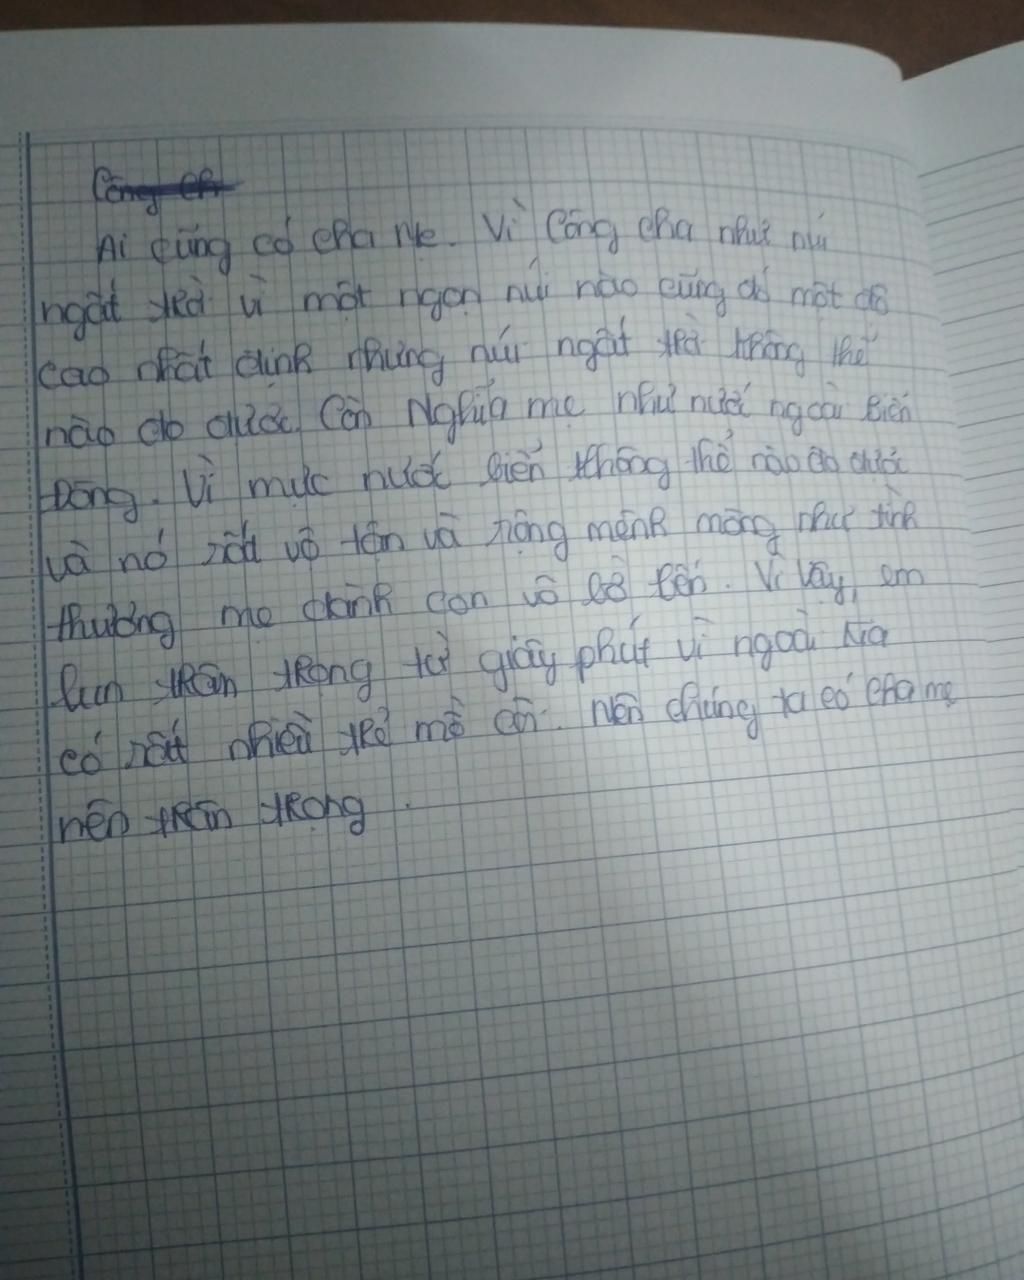 Ai cũng có cha mẹ. Vì Công cha như núi
ngất trời vì một ngọn núi nào cũng có một độ
cao nhất định nhưng núi ngất trời không thể
nào đo được. Còn Nghĩa mẹ như nước ngoài Biển
Đông. Vì mực nước biển không thể nào đo được
và nó rất vô tận và rộng mênh mông như tình
thương mẹ dành con vô bờ bến. Vì vậy, em
lun trân trọng từ giây phút vì ngoài kia
có rất nhiều trẻ mồ côi. nên chúng ta có cha mẹ
nên trân trọng.